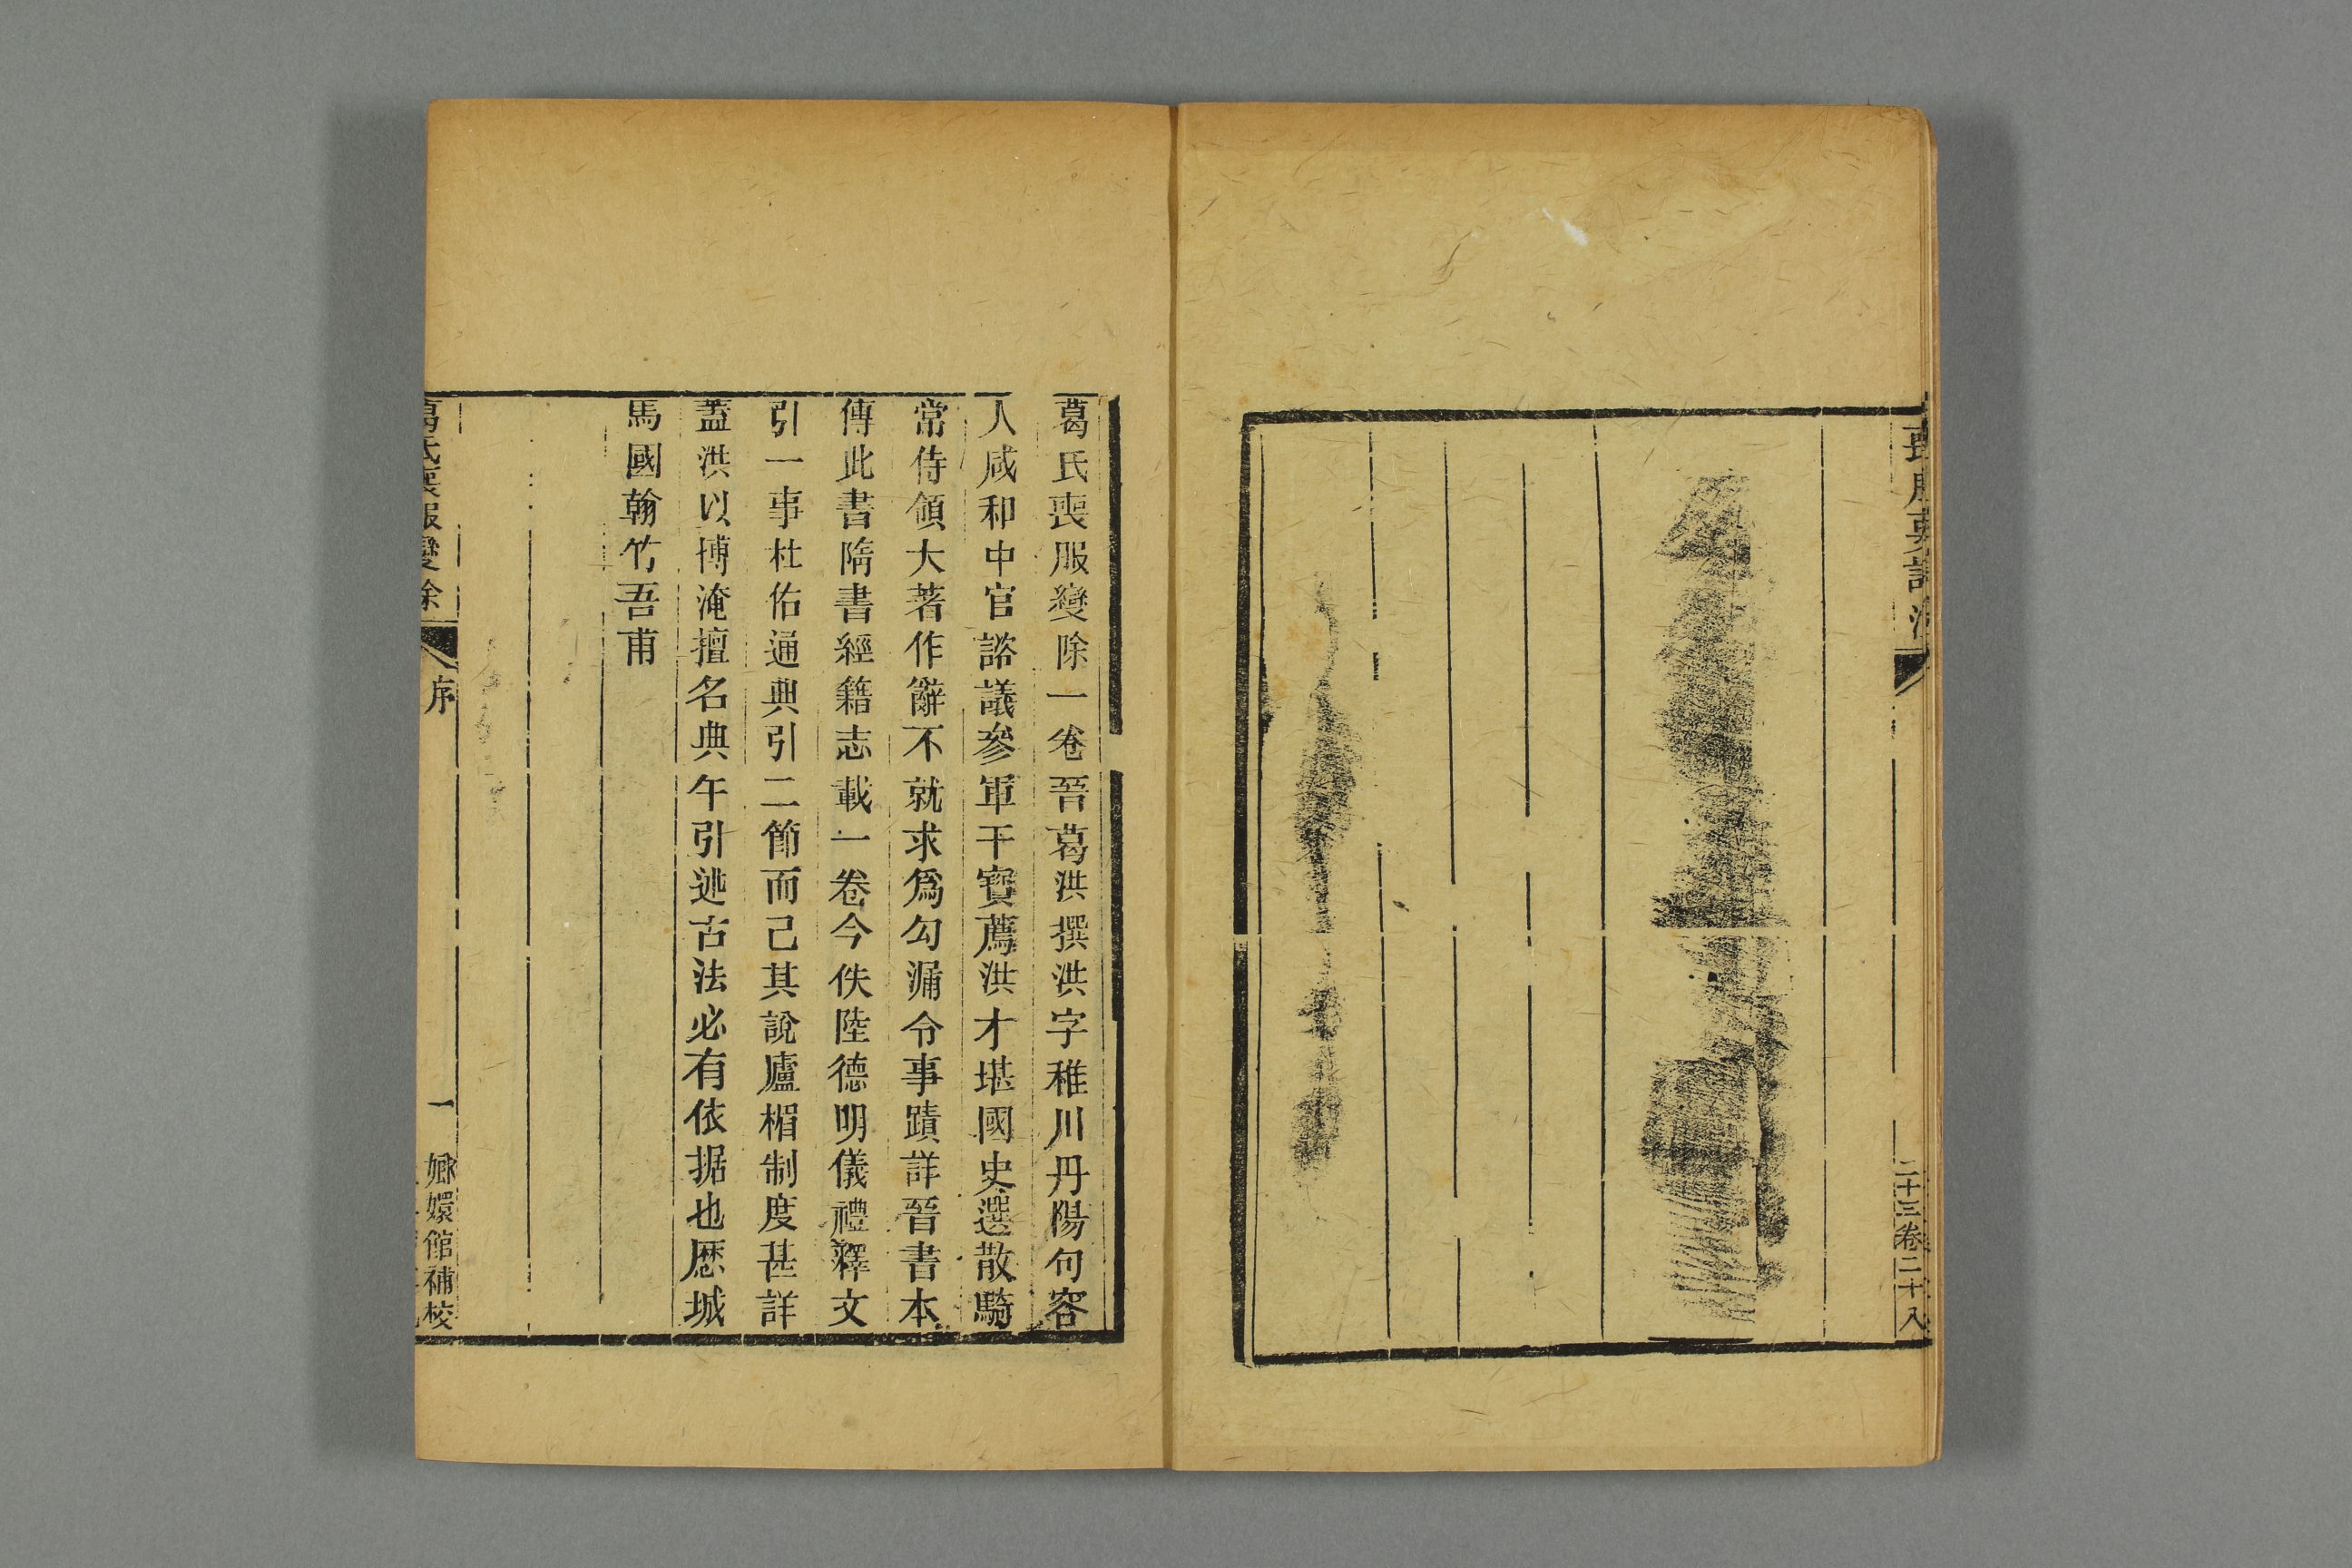 二十三卷二十八
葛氏喪服變除一卷晉葛洪撰洪字稚川丹陽句容
人咸和中官諮議參軍干寶薦洪才堪國史選散騎
常侍領大著作辭不就求爲勾漏令事蹟詳晉書本
傳此書隋書經籍志載一卷今佚陸德明儀禮釋文
引一事杜佑通典引二節而己其說廬楣制度甚詳
葢洪以博淹擅名典午引述古法必有依据也歷城
馬國翰竹吾甫
葛氏喪服變除 序 一 嫏嬛館補校